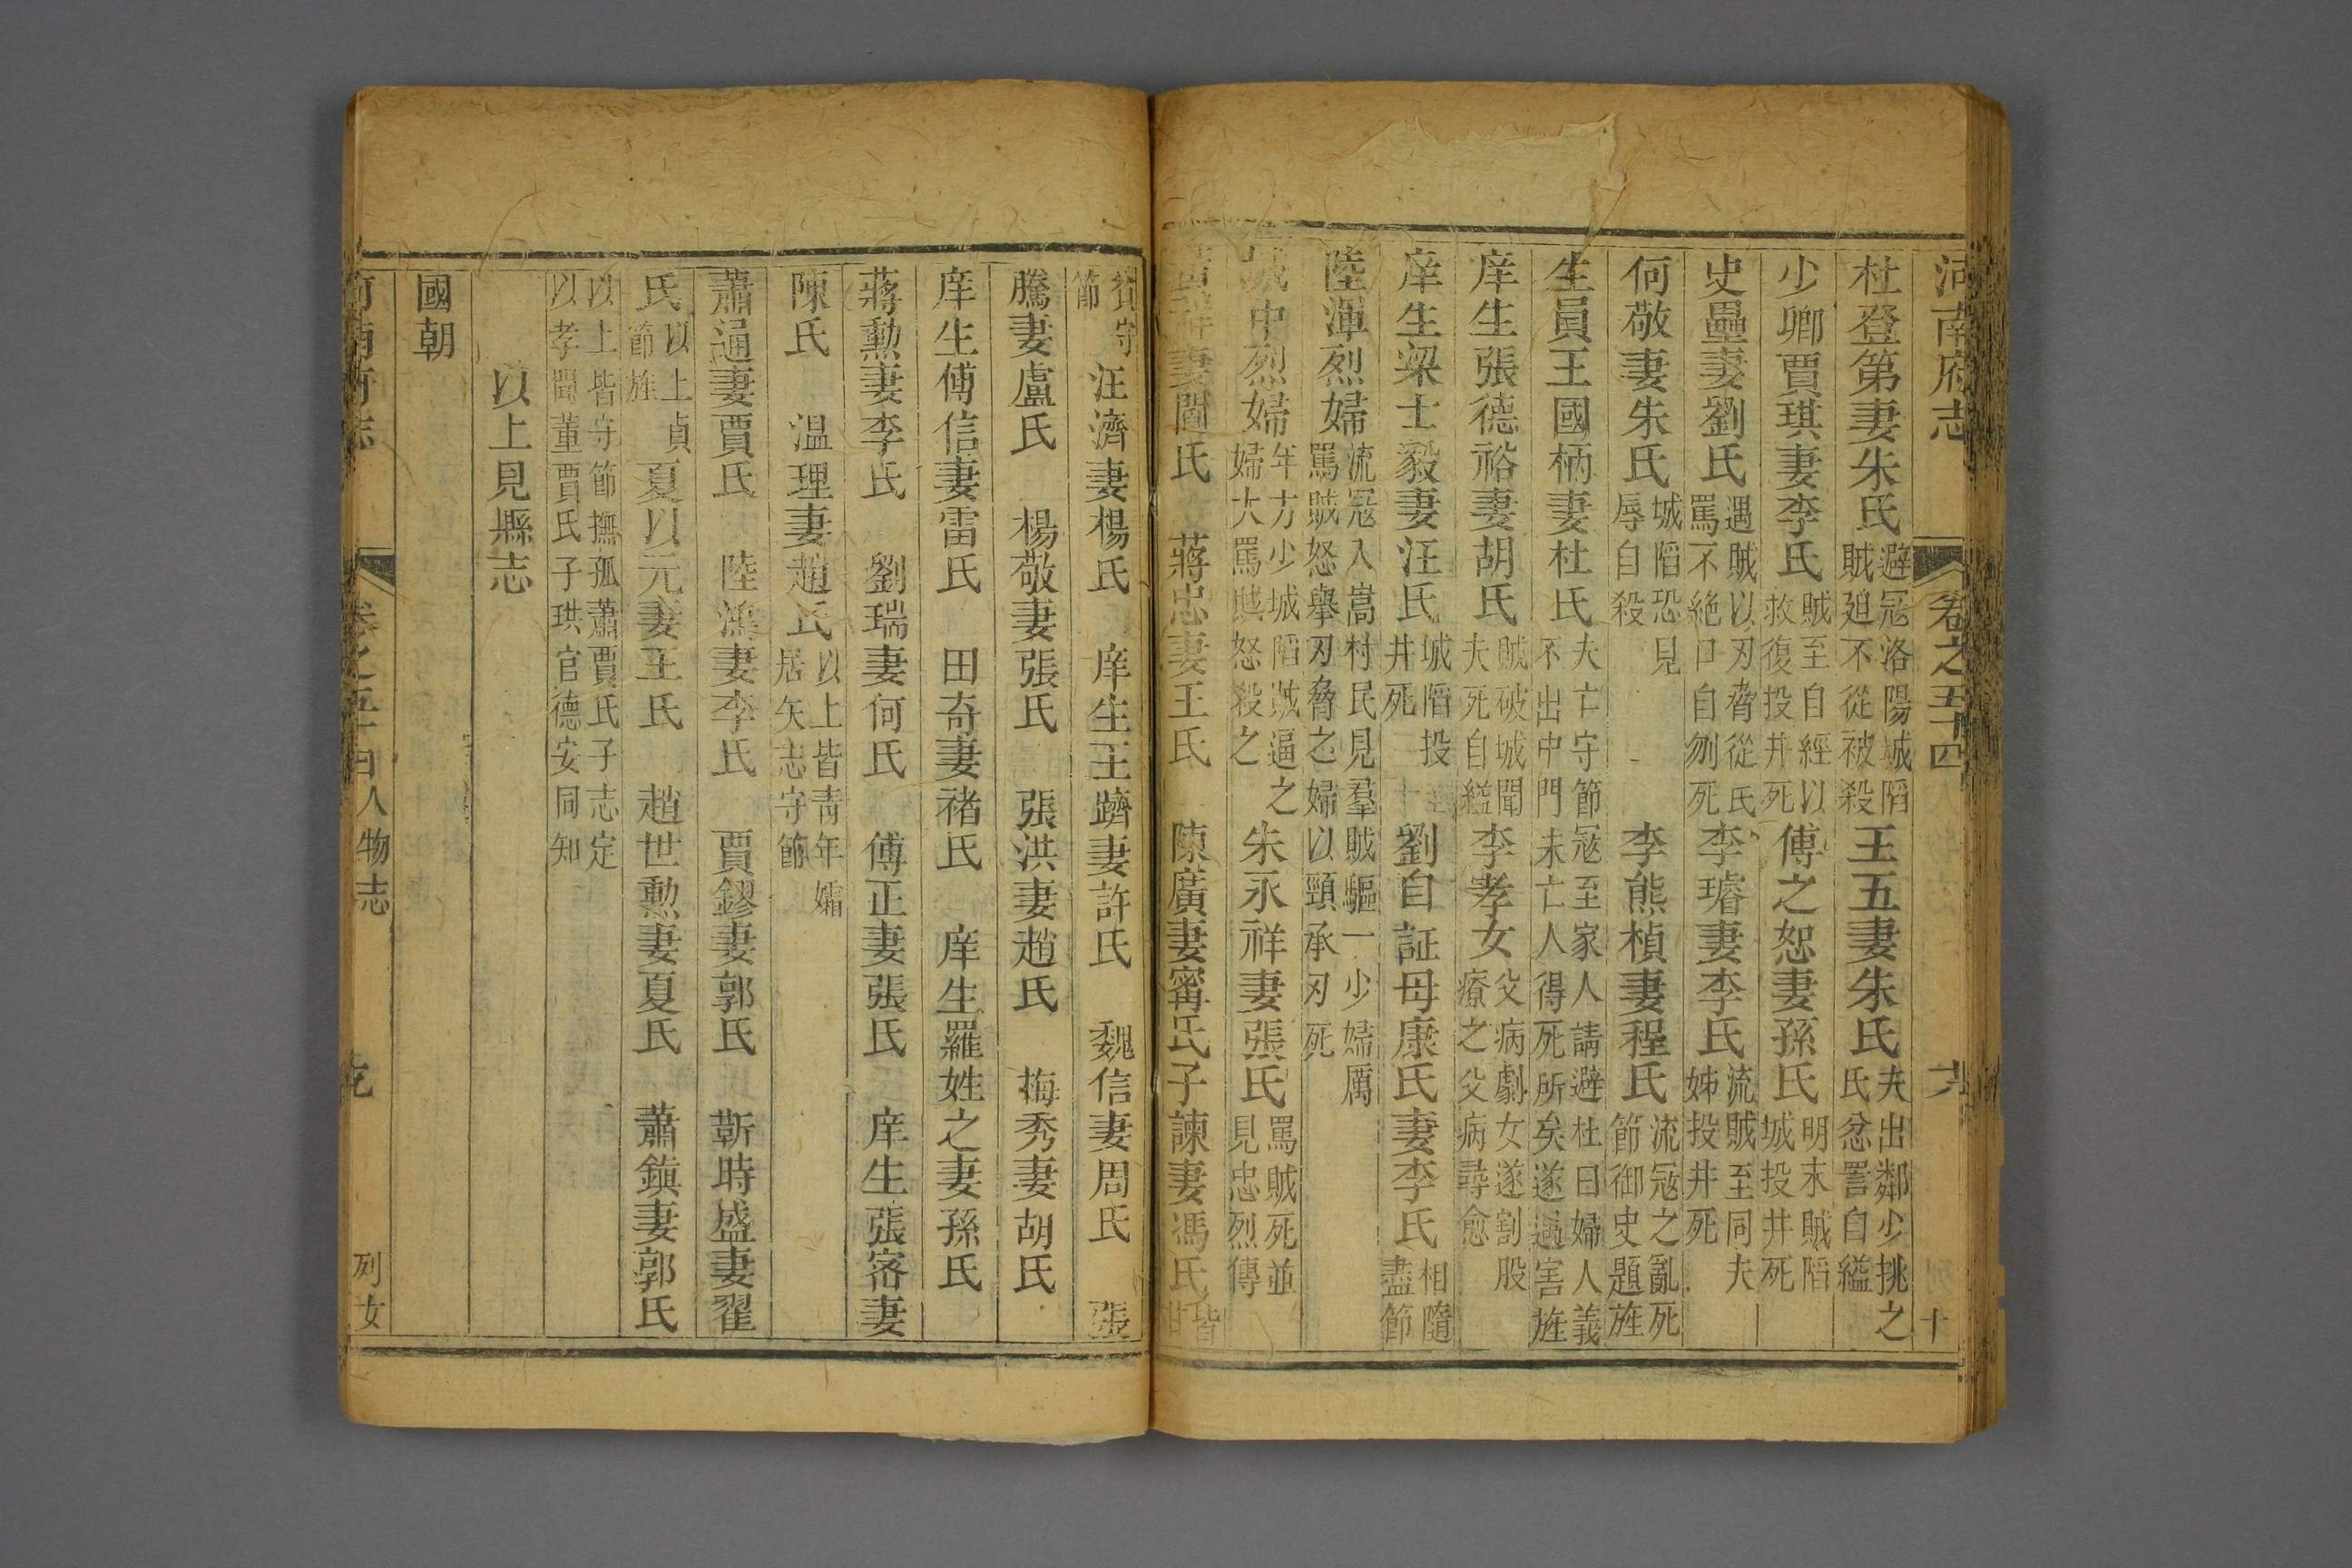 河南府志 卷之五十四
杜登第妻朱氏 避寇洛陽城陷賊廹不從被殺 王五妻朱氏 夫出鄰少挑之氏忿詈自縊
少卿賈琪妻李氏 賊至自經以救復投井死 傅之恕妻孫氏 明末賊陷城投井死
史壘妻劉氏 遇賊以刃脅從氏罵不絕口自刎死 李璿妻李氏 流賊至同夫姊投井死
何敬妻朱氏 城陷恐見辱自殺 李熊楨妻程氏 流寇之亂死節御史題旌
生員王國柄妻杜氏 夫亡守節寇至家人請避杜曰婦人義不出中門未亡人得死所矣遂遇害旌
庠生張德裕妻胡氏 賊破城聞夫死自縊 李孝女 父病劇女遂割股療之父病尋愈
庠生梁士毅妻汪氏 城陷投井死 劉自証母康氏妻李氏 相隨盡節
陸渾烈婦 流寇入嵩村民見羣賊驅一少婦厲罵賊怒舉刃脅之婦以頸承刃死
城中烈婦 年方少城陷賊逼之婦大罵賊怒殺之 朱永祥妻張氏 罵賊死並見忠烈傳
妻閻氏 蔣忠妻王氏 陳廣妻甯氏子諫妻馮氏 皆
貧守節 汪濟妻楊氏 庠生王躋妻許氏 魏信妻周氏 張
騰妻盧氏 楊敬妻張氏 張洪妻趙氏 梅秀妻胡氏
庠生傅信妻雷氏 田奇妻褚氏 庠生羅姓之妻孫氏
蔣勲妻李氏 劉瑞妻何氏 傅正妻張氏 庠生張密妻
陳氏 温理妻趙氏 以上皆青年孀居矢志守節
蕭通妻賈氏 陸鴻妻李氏 賈鏐妻郭氏 靳時盛妻翟
氏 以上貞節旌 夏以元妻王氏 趙世勲妻夏氏 蕭鎮妻郭氏
以上皆守節撫孤蕭賈氏子志定以孝聞董賈氏子珙官德安同知
以上見縣志
國朝
河南府志 卷之五十四 人物志 列女